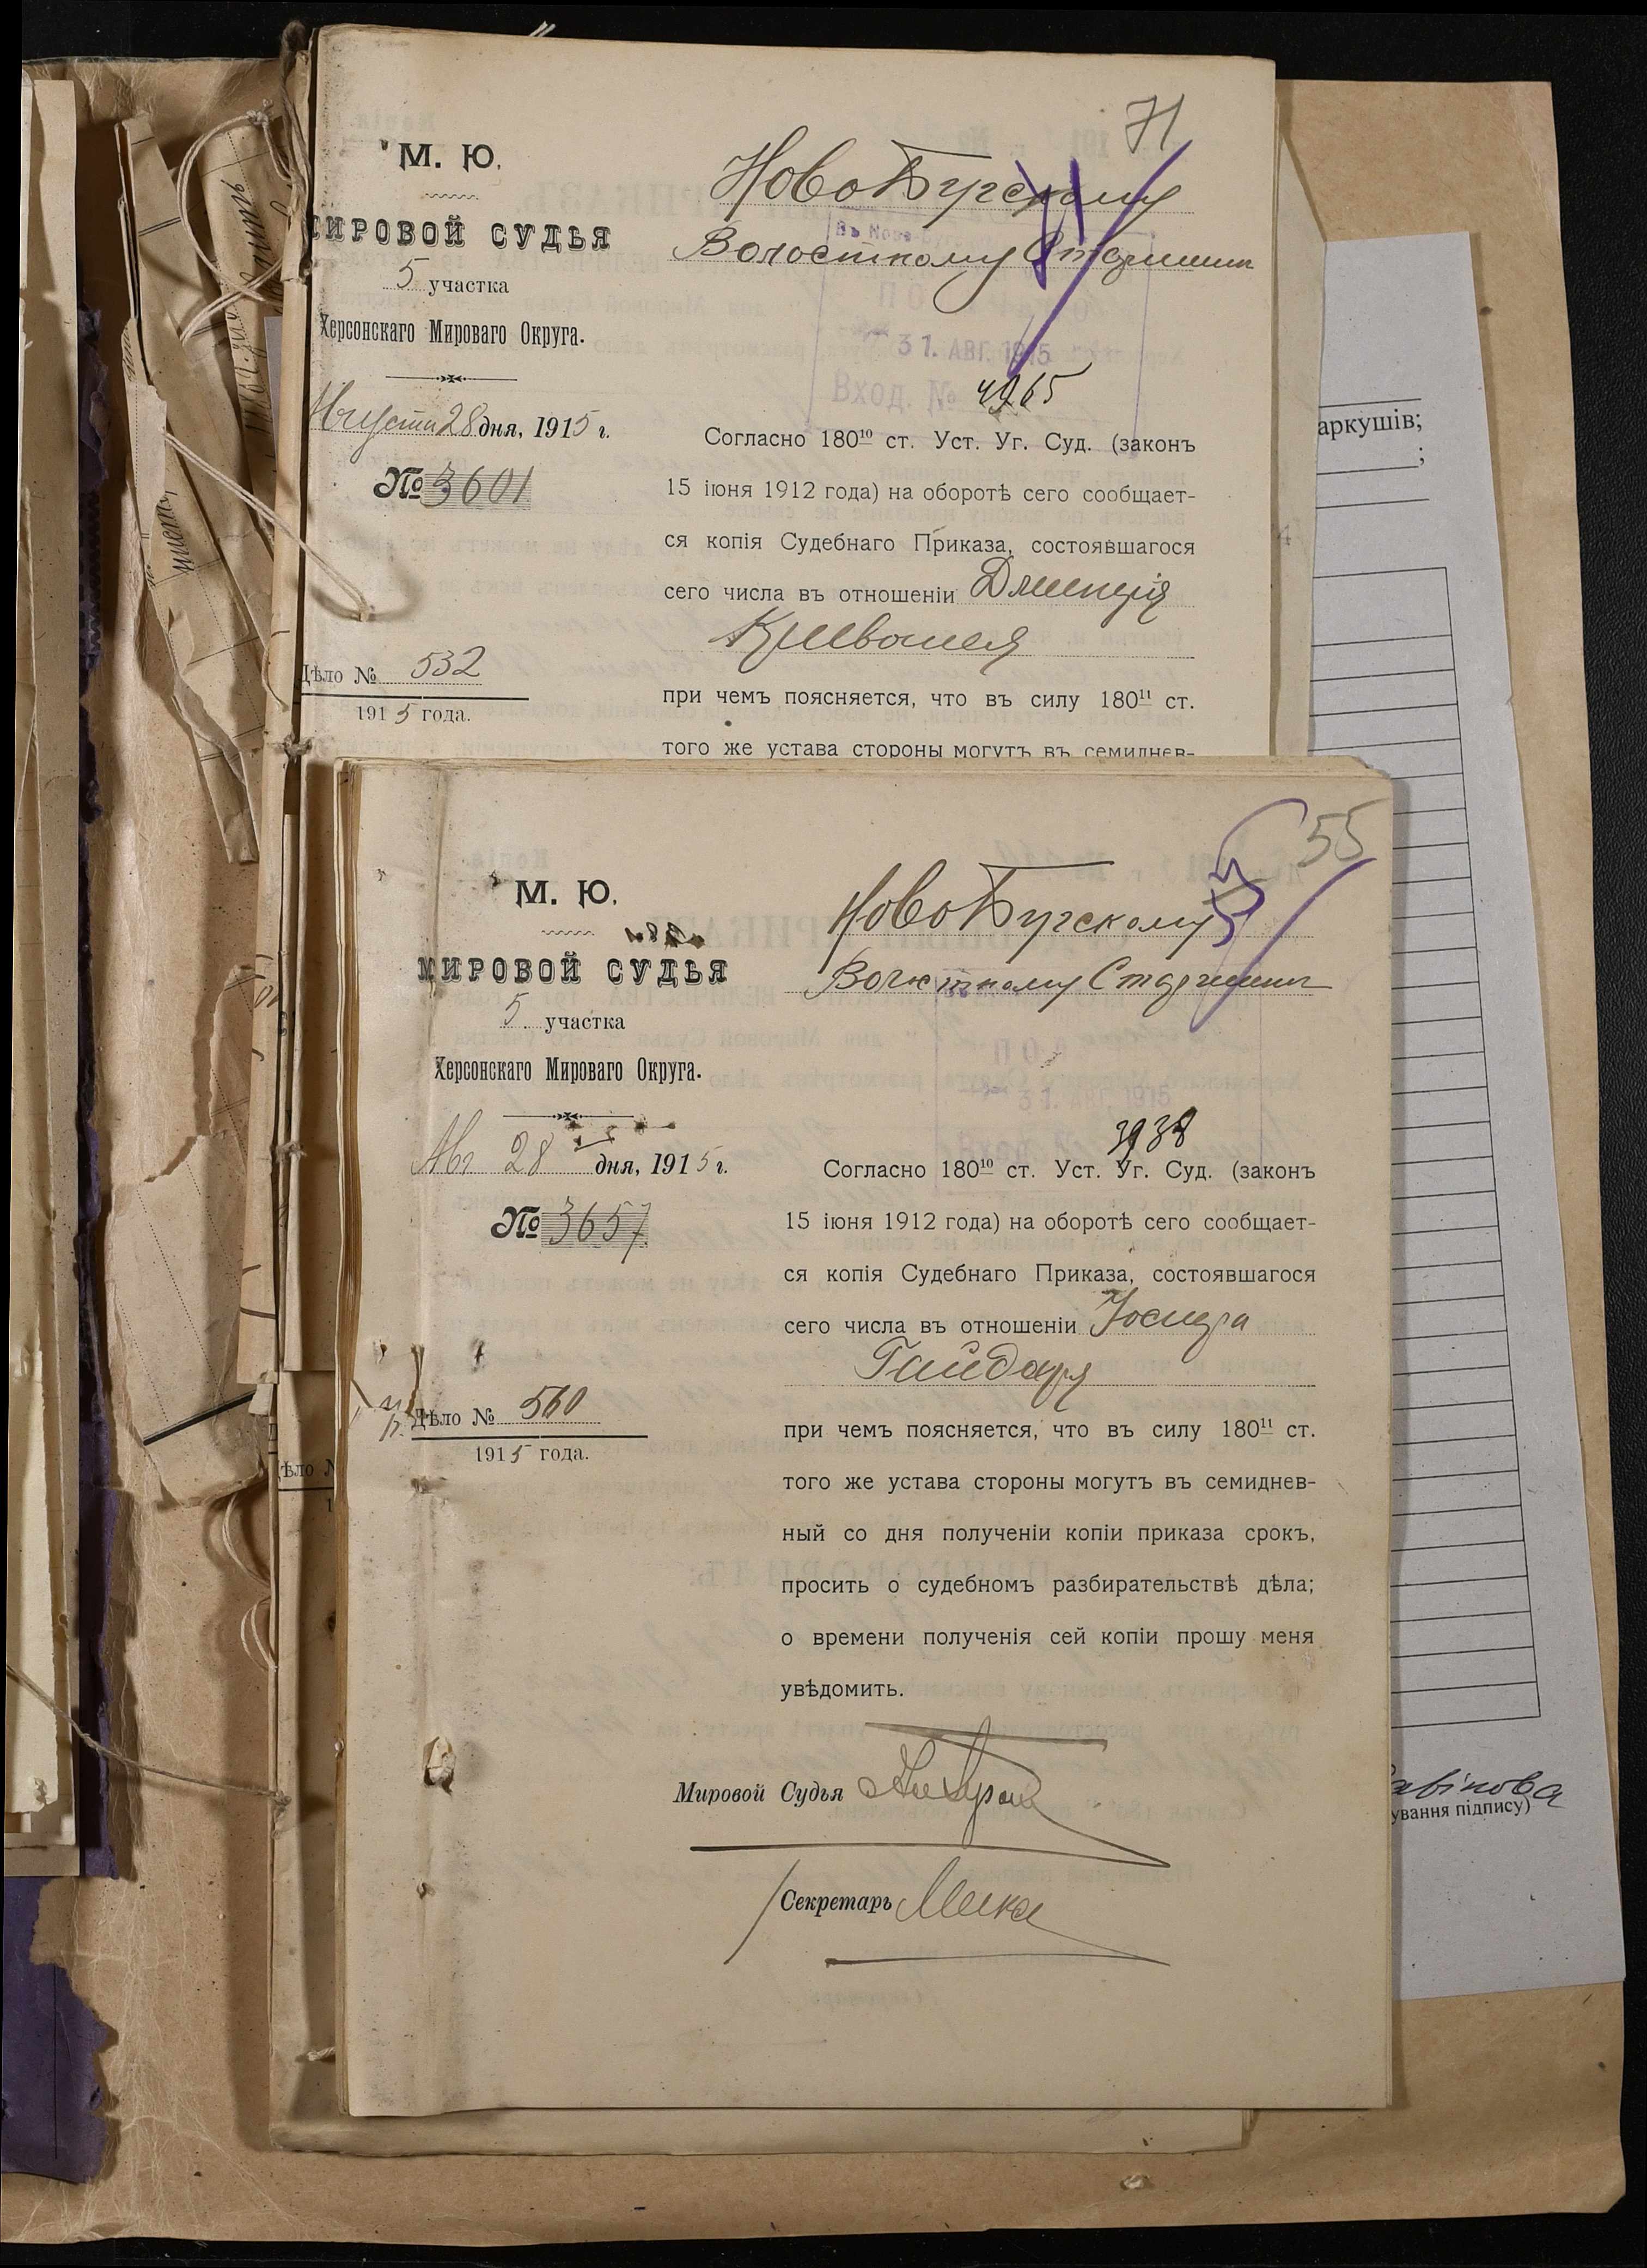 71
М. Ю.
МИРОВОЙ СУДЬЯ
5 участка
Херсонскаго Мироваго Округа.
Августа 28 дня, 1915 г.
№ 3601
Дѣло № 532
1915 года.
НовоБугскому
Волостному Старшине
31. АВГ. 1915
Вход. № 4965
Согласно 180¹⁰ ст. Уст. Уг. Суд. (законъ
15 іюня 1912 года) на оборотѣ сего сообщает-
ся копія Судебнаго Приказа, состоявшагося
сего числа въ отношеніи Дмитрія
Кривошея
при чемъ поясняется, что въ силу 180¹¹ ст.
того же устава стороны могутъ въ семиднев-
55
М. Ю.
МИРОВОЙ СУДЬЯ
5 участка
Херсонскаго Мироваго Округа.
Авг 28 дня, 1915 г.
№ 3657
Дѣло № 560
1915 года.
НовоБугскому
Волостному Старшине
31. АВГ. 1915
3938
Согласно 180¹⁰ ст. Уст. Уг. Суд. (законъ
15 іюня 1912 года) на оборотѣ сего сообщает-
ся копія Судебнаго Приказа, состоявшагося
сего числа въ отношеніи Иосифа
Гайдаря
при чемъ поясняется, что въ силу 180¹¹ ст.
того же устава стороны могутъ въ семиднев-
ный со дня полученіи копіи приказа срокъ,
просить о судебномъ разбирательствѣ дѣла;
о времени полученія сей копіи прошу меня
увѣдомить.
Мировой Судья
Секретарь
аркушів;
;
ування підпису)